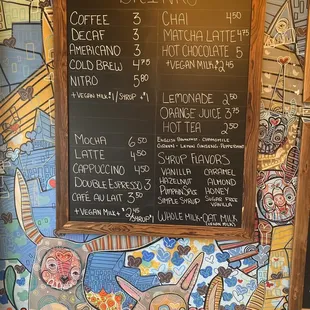 DRINKS
COFFEE 3
DECAF 3
AMERICANO 3
COLD BREW 4.75
NITRO 5.80
+ VEGAN MILK $1/SYRUP $.1
MOCHA 6.50
LATTE 4.50
CAPPUCCINO 4.50
DOUBLE ESPRESSO 3
CAFÉ AU LAIT 3.50
+ VEGAN MILK
SYRUP
CHAI 4.50
MATCHA LATTE 4.75
HOT CHOCOLATE 5
+ VEGAN MILK 2.45
LEMONADE 2.50
ORANGE JUICE 3.75
HOT TEA 2.50
ENGLISH BREAKFAST - CHAMOMILE
GREEN - LEMON GINSENG - PEPPERMINT
SYRUP FLAVORS
VANILLA CARAMEL
HAZELNUT ALMOND
PUMPKIN SPICE HONEY
SIMPLE SYRUP SUGAR FREE VANILLA
WHOLE MILK - OAT MILK
(VEGAN MILK)